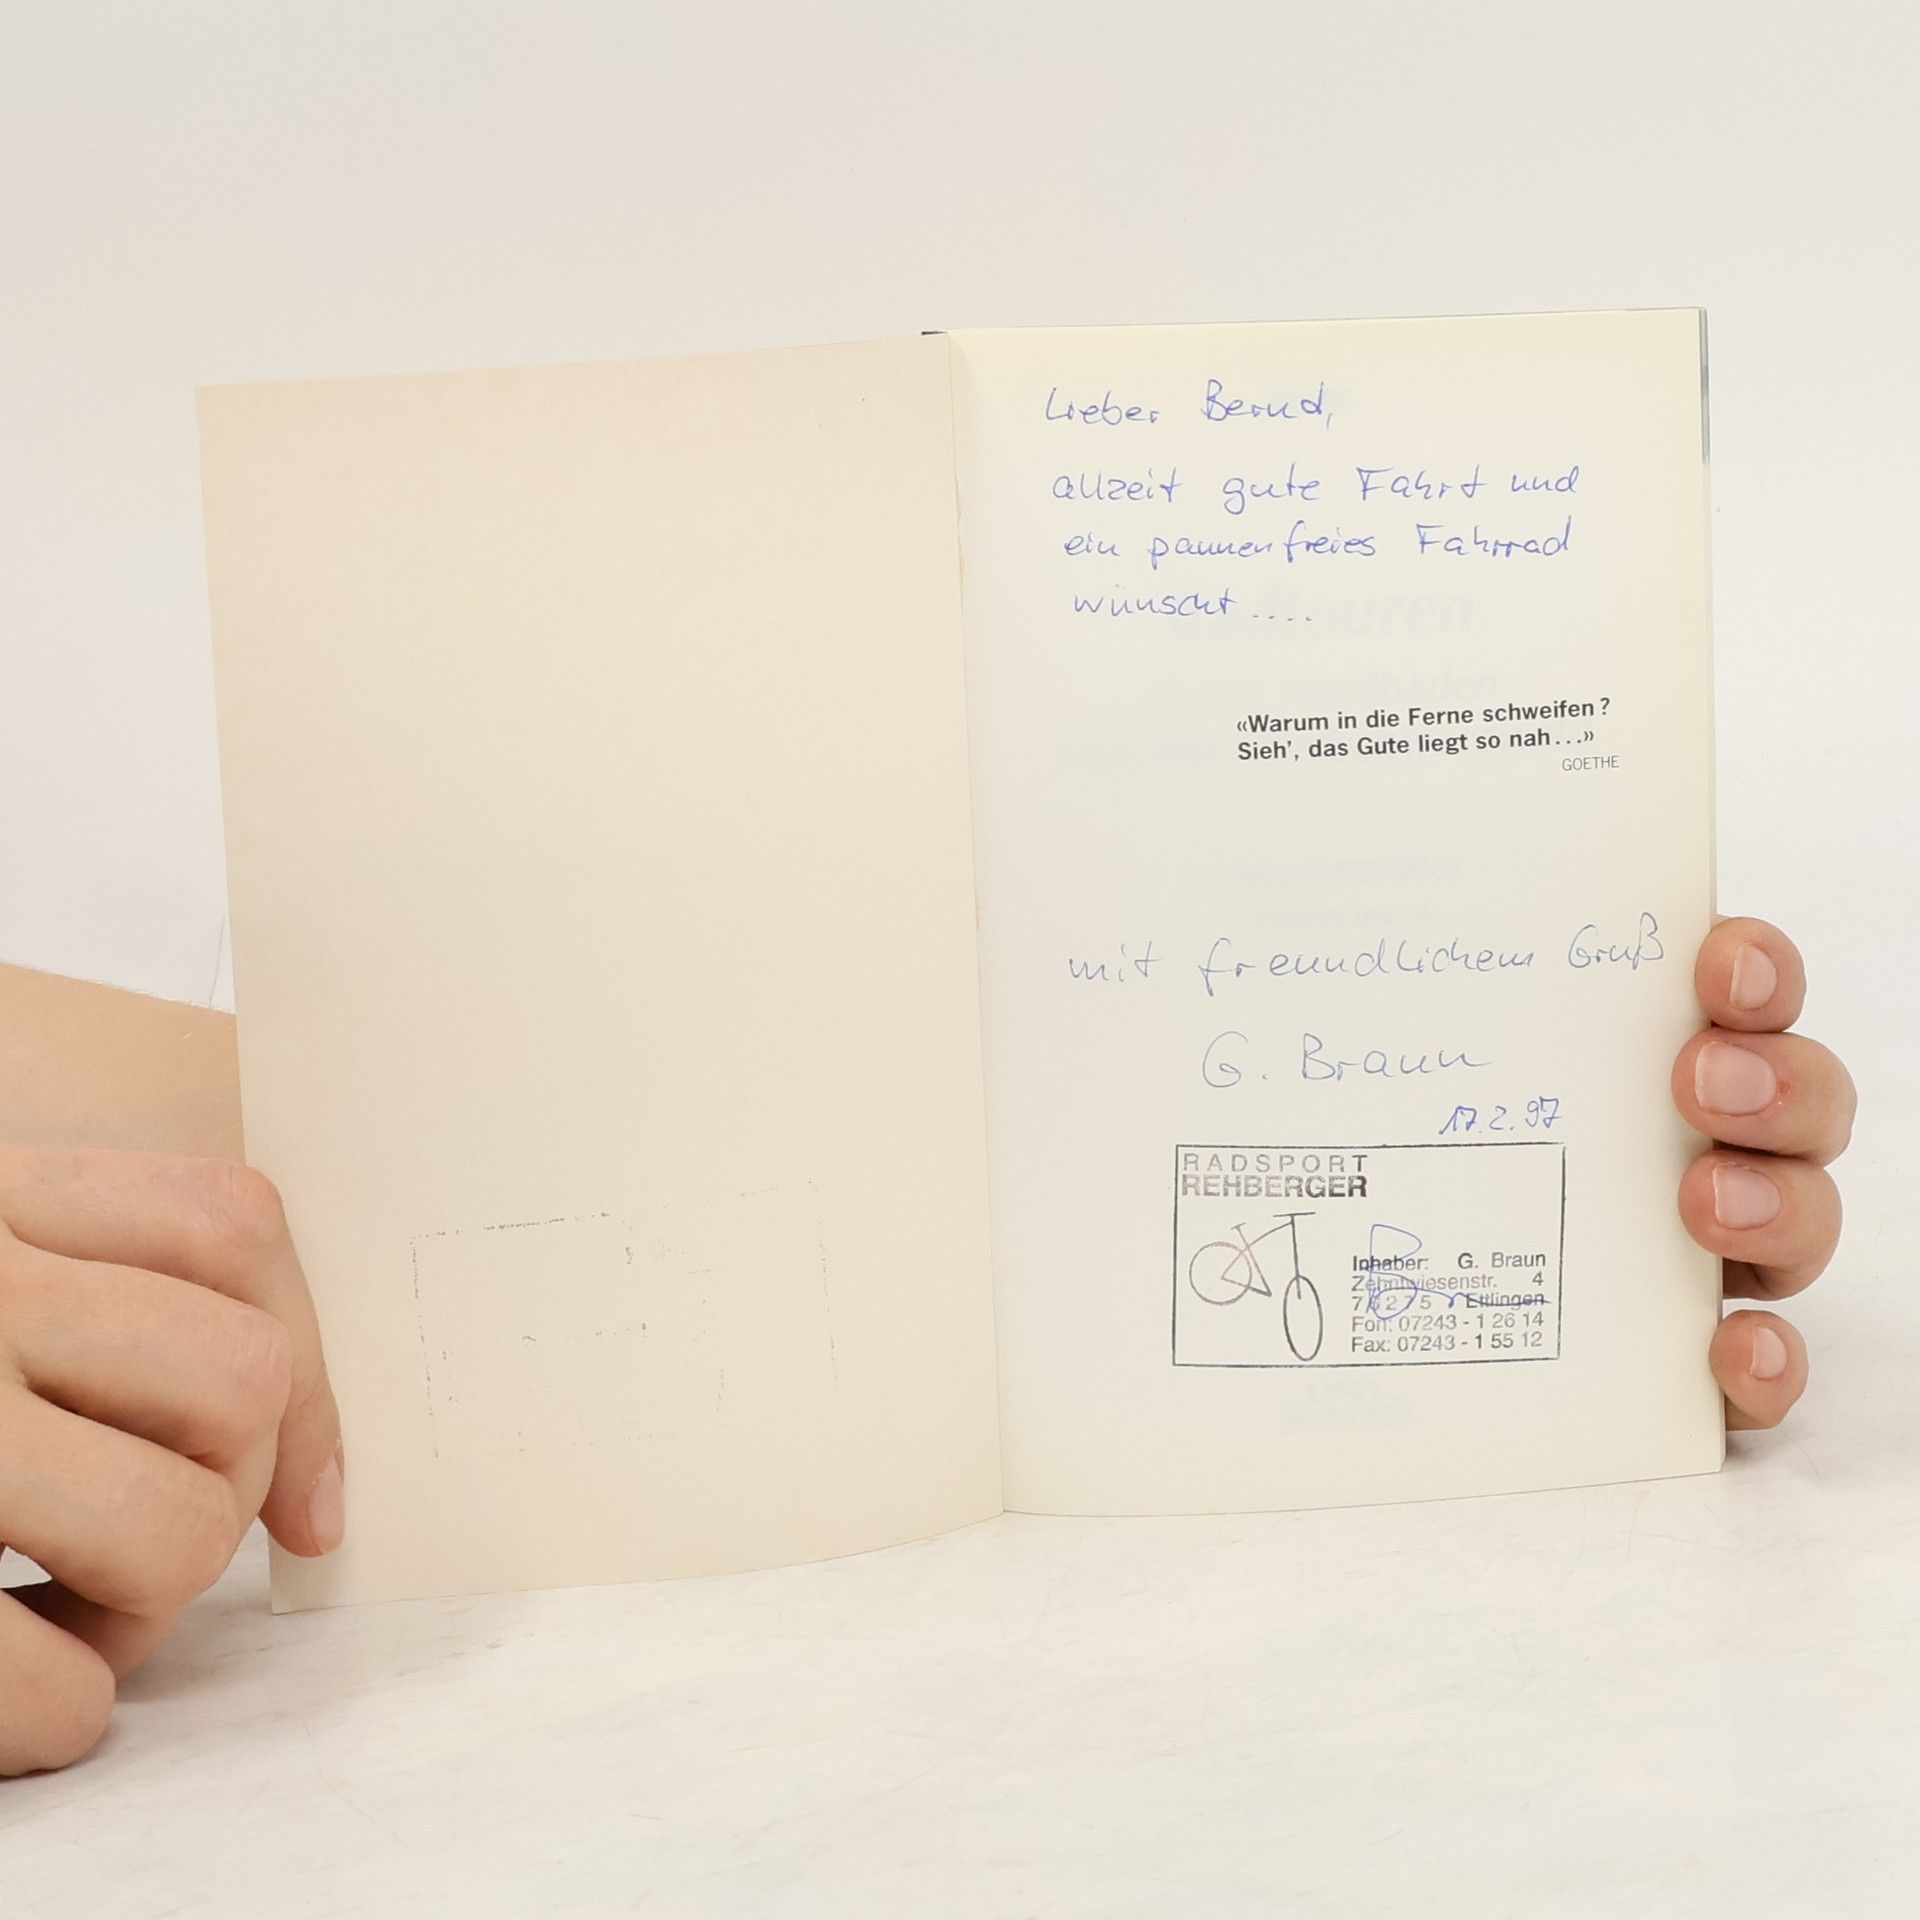 Lieber Bernd,
allzeit gute Fahrt und
ein pannenfreies Fahrrad
wünscht ....
«Warum in die Ferne schweifen?
Sieh', das Gute liegt so nah...»
GOETHE
mit freundlichem Gruß
G. Braun
17.2.97
RADSPORT
REHBERGER
Inhaber: G. Braun
Zehntwiesenstr. 4
76275 Ettlingen
Fon: 07243 - 1 26 14
Fax: 07243 - 1 55 12